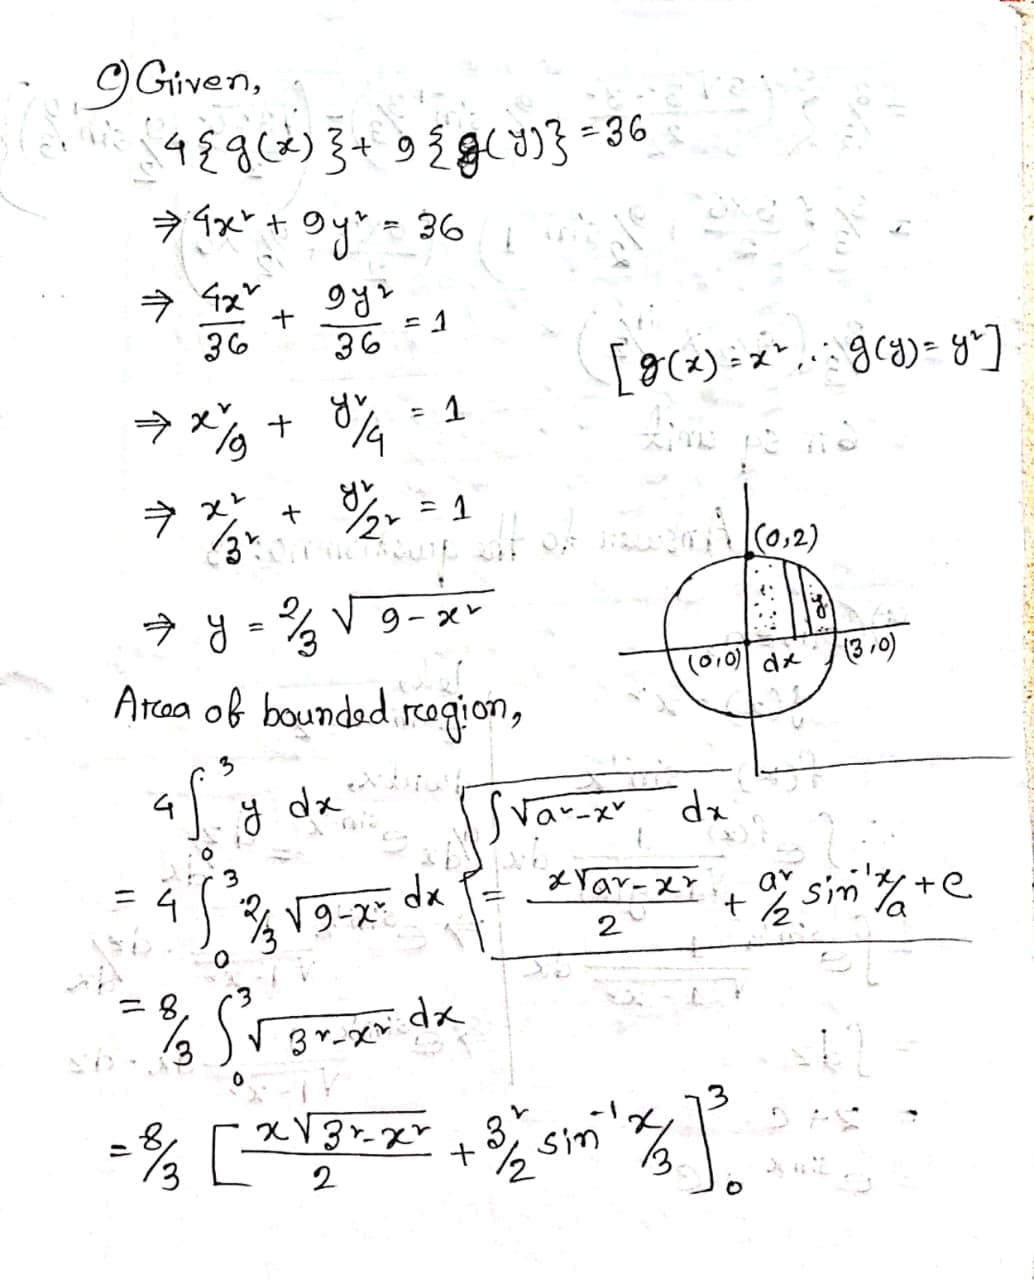 g) Given,
4{g(x)}+ 9{g(y)} = 36
⇒ 4x² + 9y² = 36
⇒ 4x²/36 + 9y²/36 = 1
[g(x) = x², ∴ g(y) = y²]
⇒ x²/9 + y²/4 = 1
⇒ x²/3² + y²/2² = 1
(0,2)
y
⇒ y = 2/3 √(9-x²)
(0,0) dx (3,0)
Area of bounded region,
4∫₀³ y dx
∫√(a²-x²) dx
= 4∫₀³ 2/3 √(9-x²) dx
= x√(a²-x²)/2 + a²/2 sin⁻¹ x/a + c
= 8/3 ∫₀³ √(3²-x²) dx
= 8/3 [x√(3²-x²)/2 + 3²/2 sin⁻¹ x/3]₀³